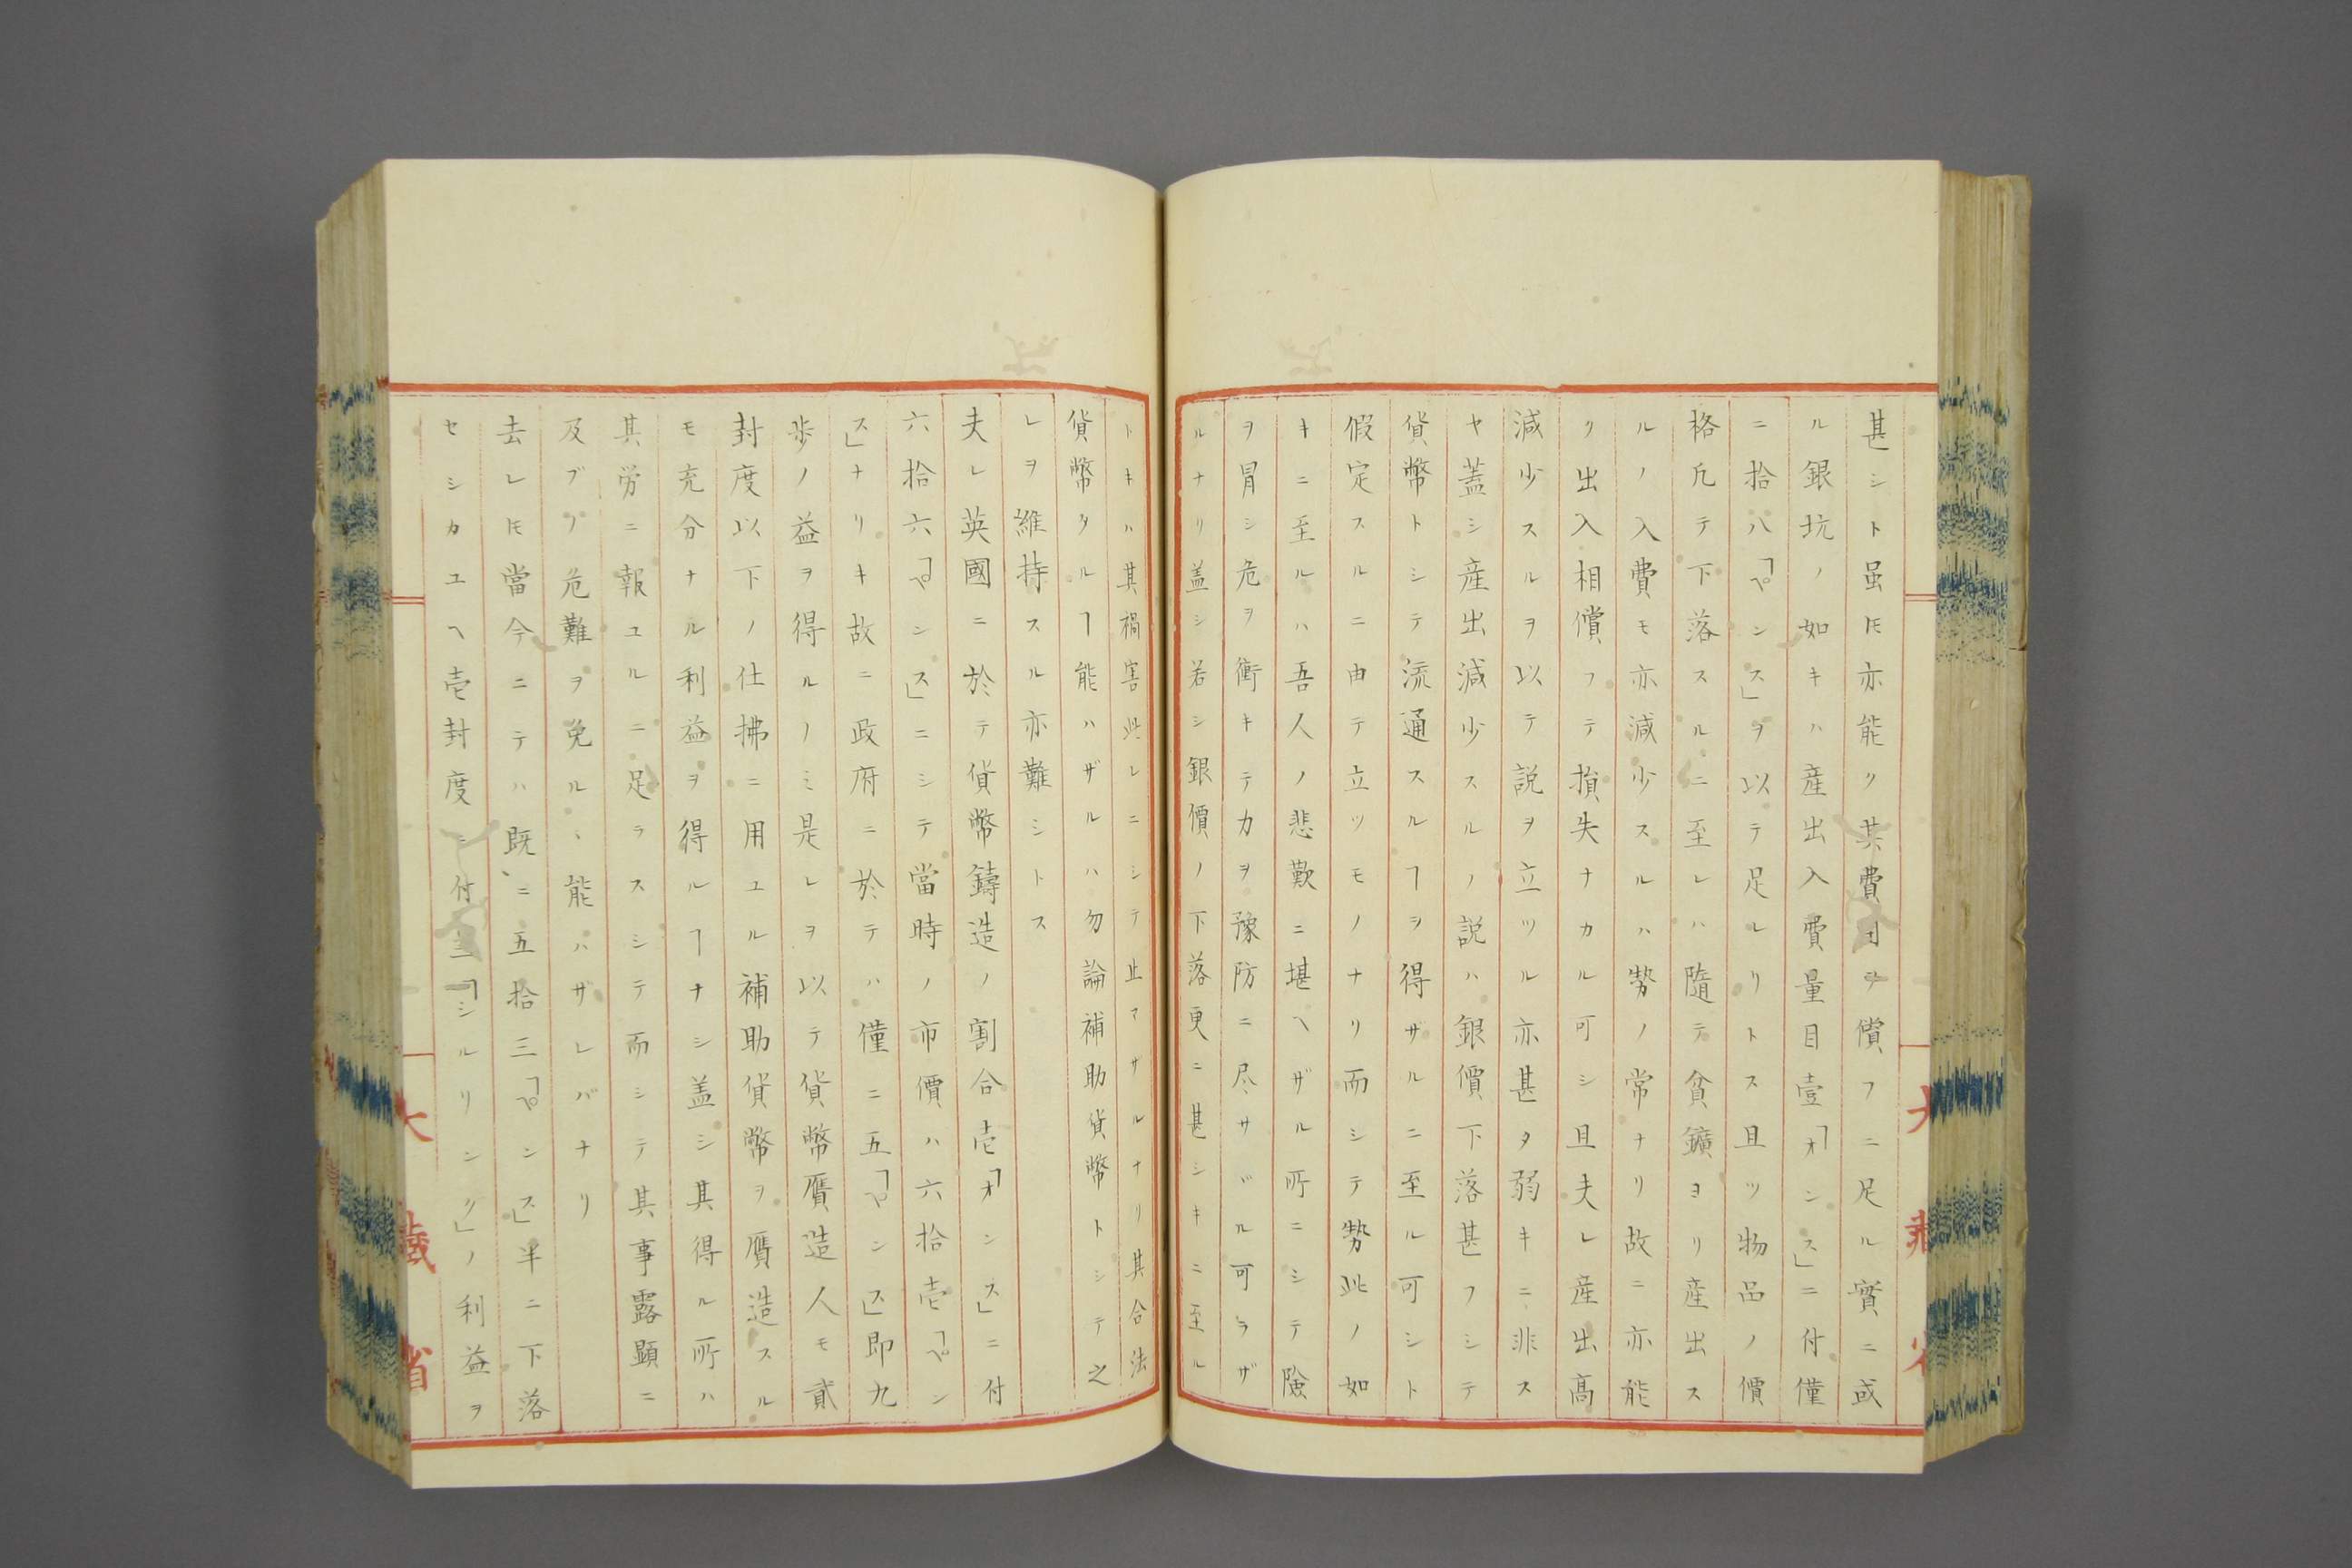 甚シト虽𪜈亦能ク其費用ヲ償フニ足ル實ニ或
ル銀坑ノ如キハ産出入費量目壹「オンス」ニ付僅
ニ拾八「ペンス」ヲ以テ足レリトス且ツ物品ノ價
格凡テ下落スルニ至レハ隨テ貧鑛ヨリ産出ス
ルノ入費モ亦減少スルハ勢ノ常ナリ故ニ亦能
ク出入相償フテ損失ナカル可シ且夫レ産出高
減少スルヲ以テ説ヲ立ツル亦甚タ弱キニ非ス
ヤ蓋シ産出減少スルノ説ハ銀價下落甚フシテ
貨幣トシテ流通スルヿヲ得ザルニ至ル可シト
假定スルニ由テ立ツモノナリ而シテ勢此ノ如
キニ至ルハ吾人ノ悲歎ニ堪ヘザル所ニシテ険
ヲ冒シ危ヲ衝キテカヲ豫防ニ尽サヾル可ラザ
ルナリ盖シ若シ銀價ノ下落更ニ甚シキニ至ル
トキハ其禍害此レニシテ止マサルナリ其合法
貨幣タルヿ能ハザルハ勿論補助貨幣トシテ之
レヲ維持スル亦難シトス
夫レ英國ニ於テ貨幣鑄造ノ割合壱「オンス」ニ付
六拾六「ペンス」ニシテ當時ノ市價ハ六拾壱「ペン
ス」ナリキ故ニ政府ニ於テハ僅ニ五「ペンス」即九
歩ノ益ヲ得ルノミ是レヲ以テ貨幣贋造人モ貳
封度以下ノ仕拂ニ用ユル補助貨幣ヲ贋造スル
モ充分ナル利益ヲ得ルヿナシ盖シ其得ル所ハ
其労ニ報ユルニ足ラスシテ而シテ其事露顕ニ
及ブノ危難ヲ免ルヽ能ハザレバナリ
去レ𪜈當今ニテハ既ニ五拾三「ペンス」半ニ下落
セシカユヘ壱封度ニ付三「シルリング」ノ利益ヲ
大藏省
大藏省